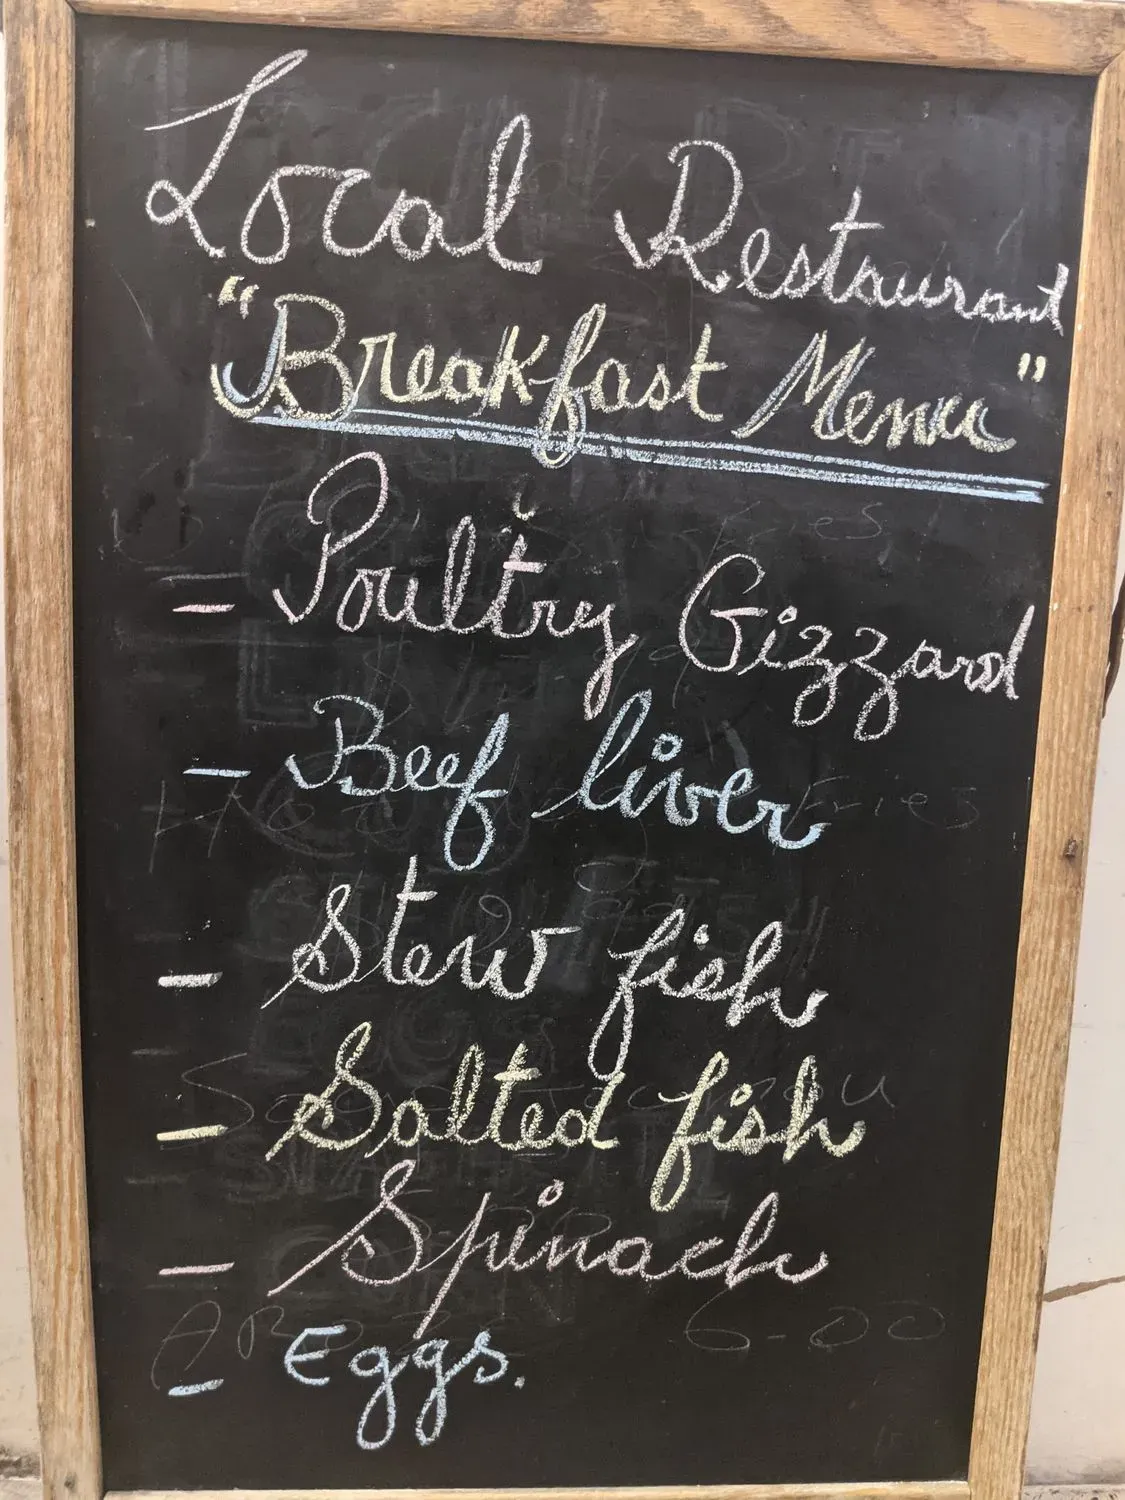 Local Restaurant
"Breakfast Menu"
- Poultry Gizzard
- Beef liver
- Stew fish
- Salted fish
- Spinach
- Eggs.